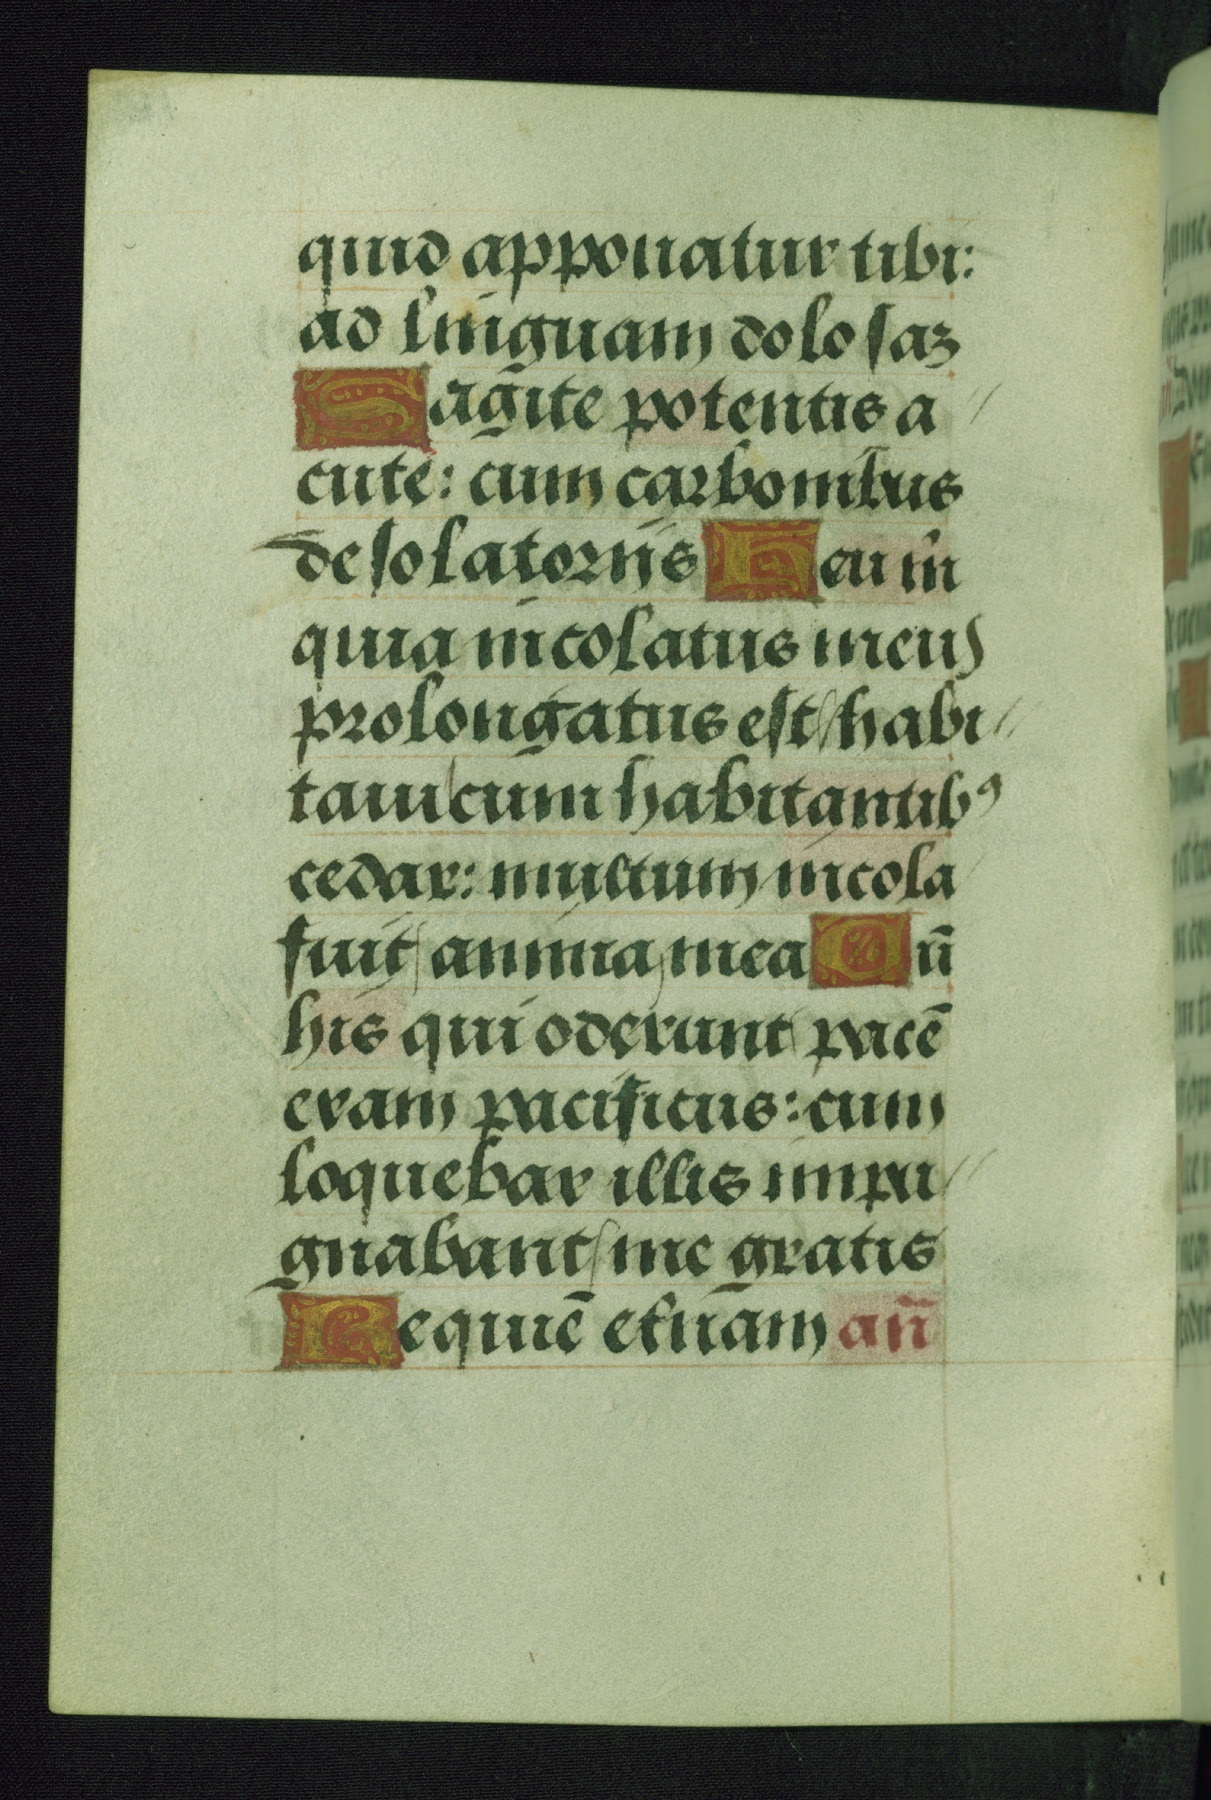 quid apponatur tibi:
ad linguam dolosaꝫ
Sagite potentis a
cute: cum carbonibus
desolatoriis Heu m̄
quia incolatus meus
prolongatus est habi
taui cum habitantibꝰ
cedar: multum incola
fuit anima mea Cū
his qui oderunt pacē
eram pacificus: cum
loquebar illis impu
gnabant me gratis
Requiē et̄nam an̄